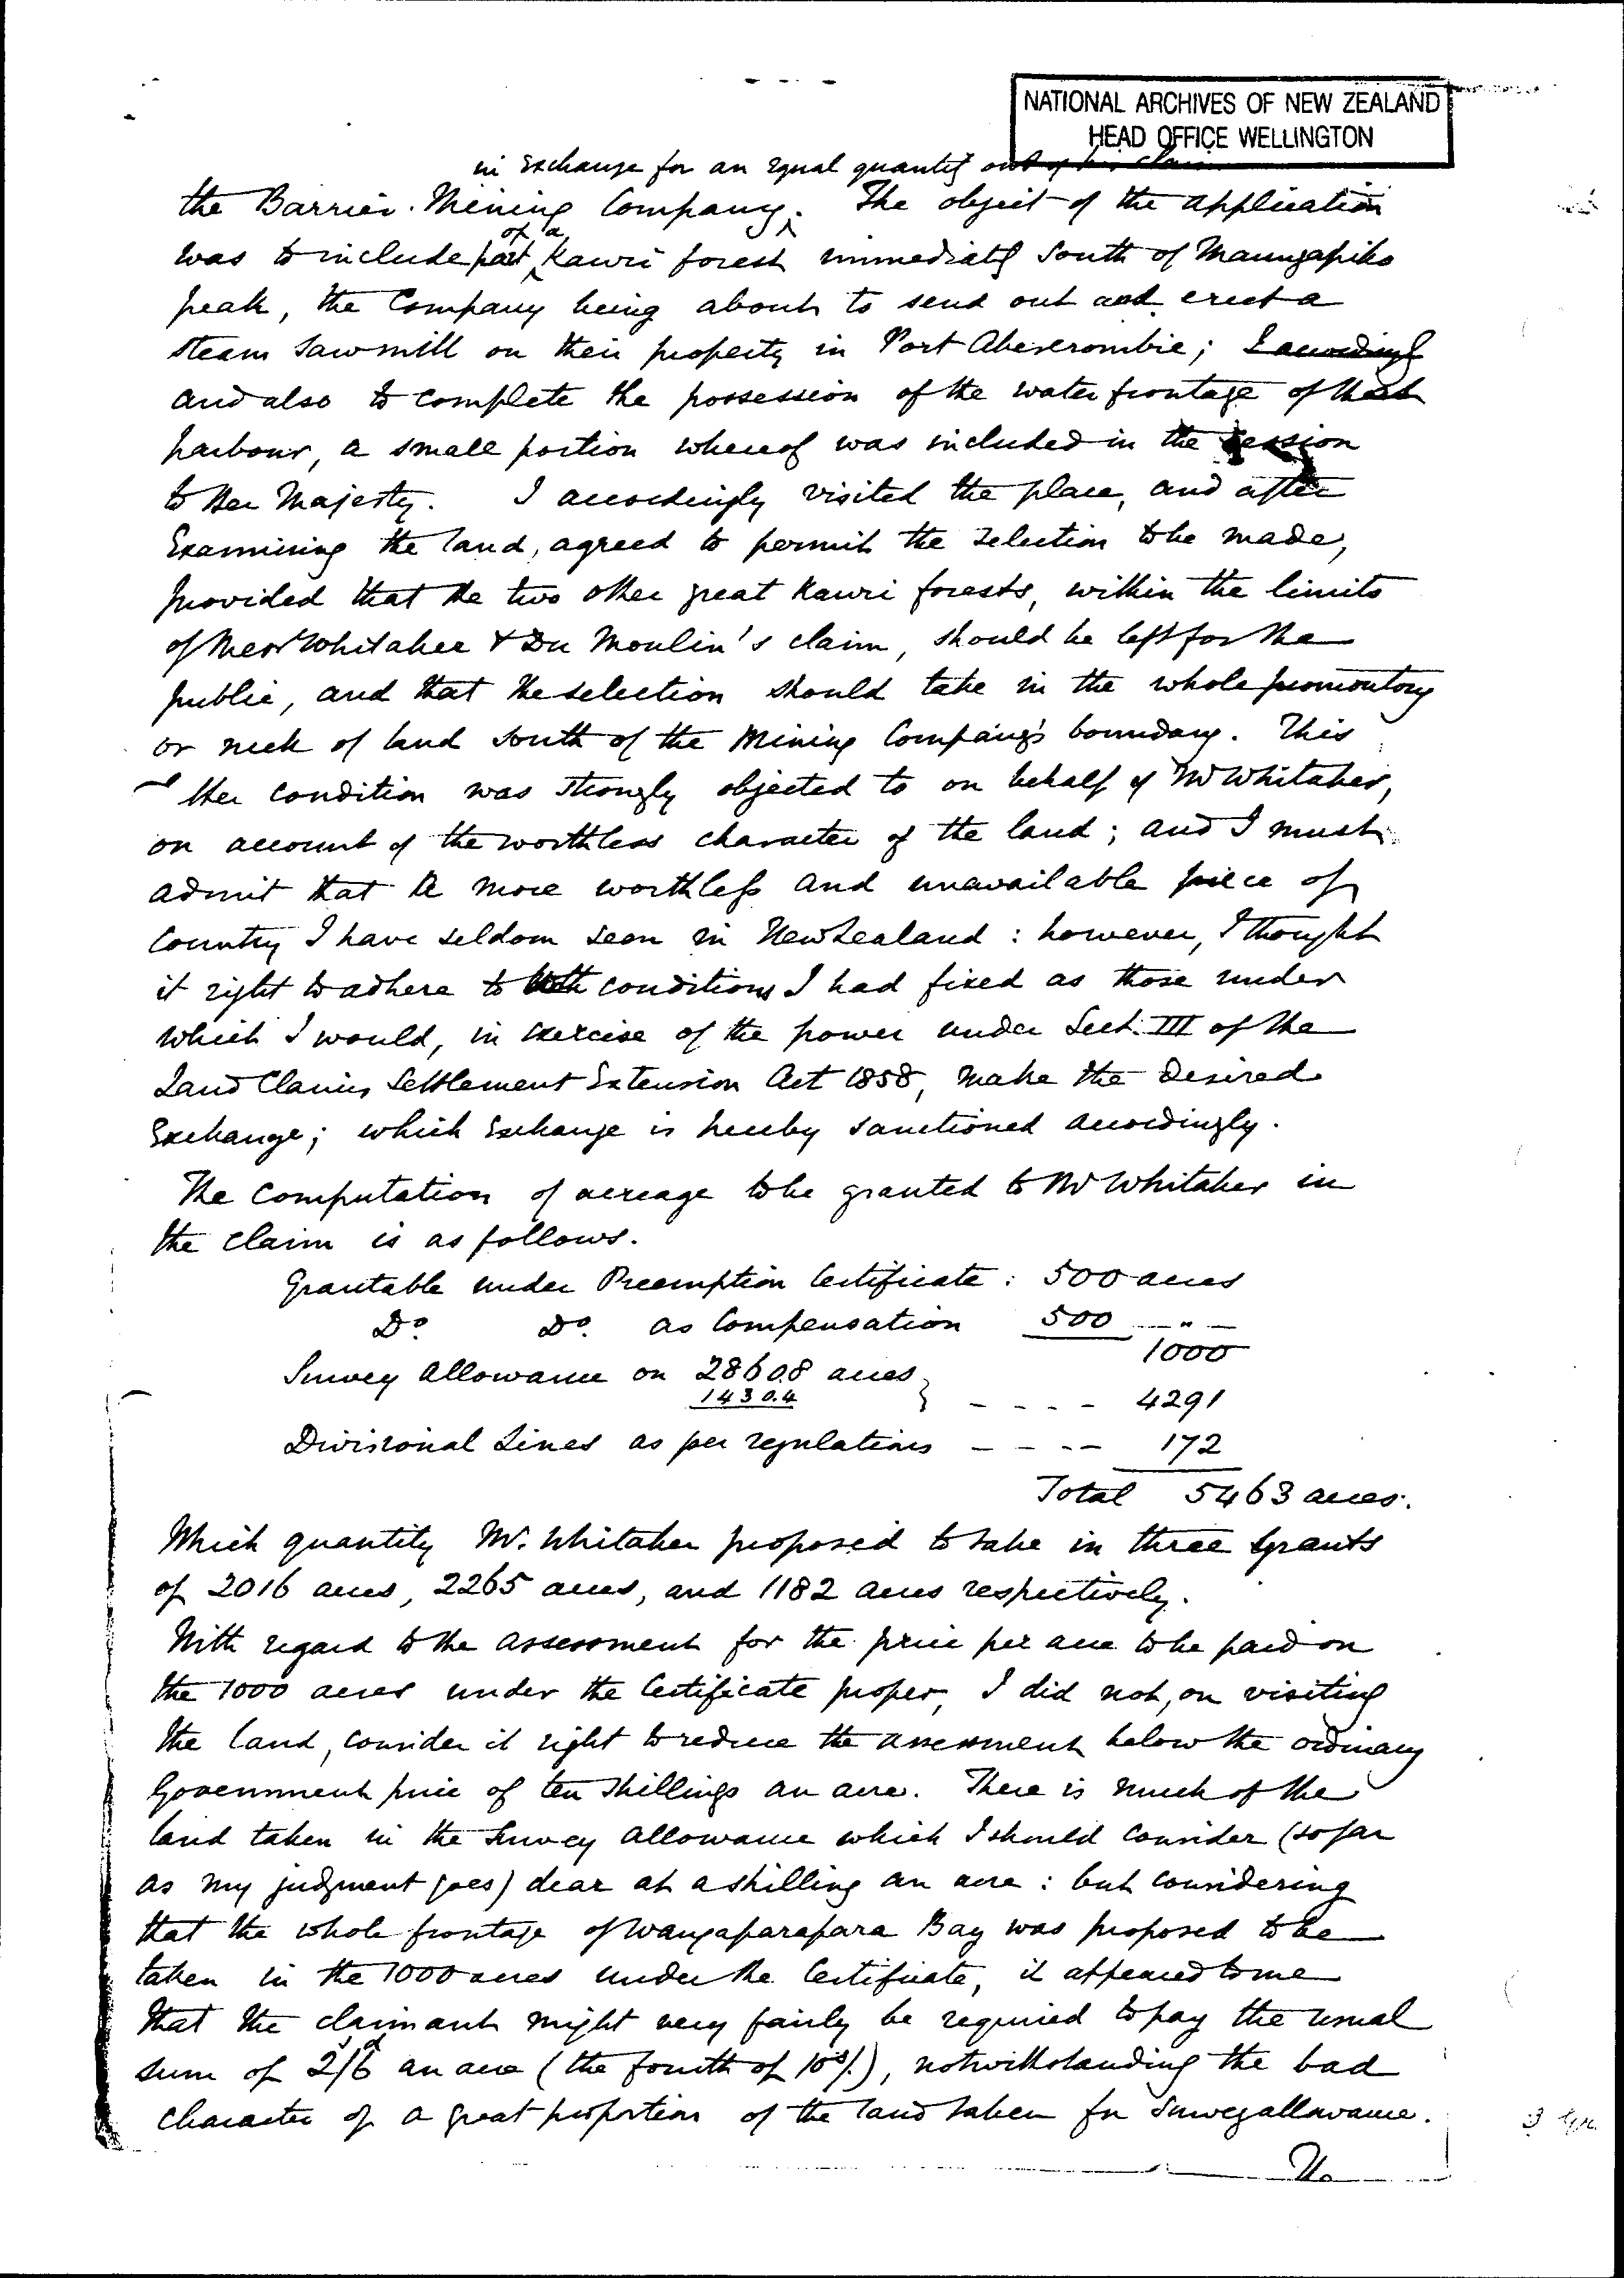 NATIONAL ARCHIVES OF NEW ZEALAND
HEAD OFFICE WELLINGTON
in exchange for an equal quantity out of his claim
the Barrier Mining Company. The object of the application
was to include part of a Kauri forest immediately South of Maungapiko
peak, the Company being about to send out and erect a
steam Sawmill on their property in Port Abercrombie; I accordingly
and also to complete the possession of the water frontage of that
harbour, a small portion whereof was included in the cession
to Her Majesty. I accordingly visited the place, and after
Examining the land, agreed to permit the selection to be made,
provided that the two other great Kauri forests, within the limits
of Messrs Whitaker & Du Moulin's claim, should be left for the
public, and that the selection should take in the whole promontory
or neck of land South of the Mining Company's boundary. This
condition was strongly objected to on behalf of Mr Whitaker,
on account of the worthless character of the land; and I must
admit that a more worthless and unavailable piece of
Country I have seldom seen in New Zealand: however, I thought
it right to adhere to both conditions I had fixed as those under
which I would, in exercise of the power under Sect. III of the
Land Claims Settlement Extension Act 1858, make the desired
Exchange; which Exchange is hereby sanctioned accordingly.
The Computation of acreage to be granted to Mr Whitaker in
the claim is as follows.
Grantable under Preemption Certificate: 500 acres
Do. Do. as Compensation 500 — " —
1000
Survey Allowance on 28608 acres
14304 } - - - - 4291
Divisional Lines as per regulations - - - - 172
Total 5463 acres.
Which quantity Mr. Whitaker proposed to take in three grants
of 2016 acres, 2265 acres, and 1182 acres respectively.
With regard to the assessment for the price per acre to be paid on
the 1000 acres under the Certificate proper, I did not, on visiting
the land, consider it right to reduce the assessment below the ordinary
Government price of ten shillings an acre. There is much of the
land taken in the Survey allowance which I should consider (so far
as my judgment goes) dear at a shilling an acre: but considering
that the whole frontage of Wangaparapara Bay was proposed to be
taken in the 1000 acres under the Certificate, it appeared to me
that the claimant might very fairly be required to pay the usual
sum of 2s/6d an acre (the fourth of 10s/.), notwithstanding the bad
character of a great proportion of the land taken for Survey allowance.
The